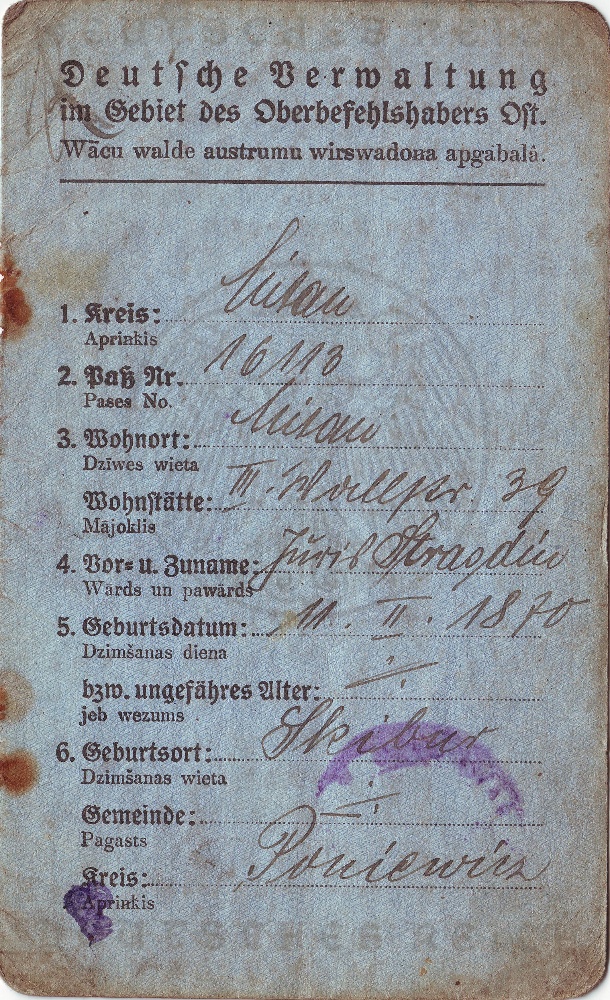 Deutsche Verwaltung
im Gebiet des Oberbefehlshabers Ost.
Wācu walde austrumu wirswadona apgabalâ.
1. Kreis: Mitau
Aprinkis
2. Paß Nr. 16113
Pases No.
3. Wohnort: Mitau
Dzīwes wieta
Wohnstätte: III. Wallstr. 39
Mājoklis
4. Vor= u. Zuname: Juris Stragdin
Wārds un pawārds
5. Geburtsdatum: 11. II. 1870
Dzimšanas diena
bzw. ungefähres Alter:
jeb wezums
6. Geburtsort: Skibur
Dzimšanas wieta
Gemeinde:
Pagasts
Kreis: Poniewicz
Aprinkis